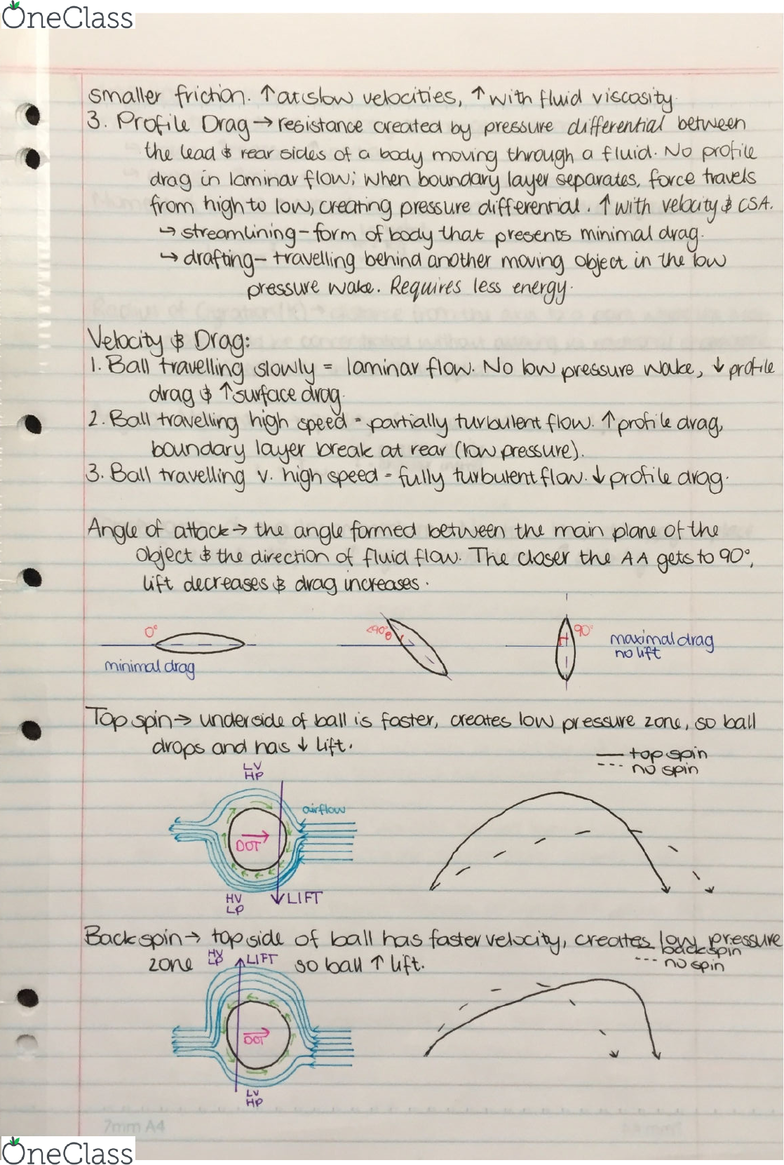 OneClass
smaller friction. ↑ at slow velocities, ↑ with fluid viscosity.
3. Profile Drag → resistance created by pressure differential between
the lead & rear sides of a body moving through a fluid. No profile
drag in laminar flow; when boundary layer separates, force travels
from high to low, creating pressure differential. ↑ with velocity & CSA.
↳ streamlining - form of body that presents minimal drag.
↳ drafting - travelling behind another moving object in the low
pressure wake. Requires less energy.
Velocity & Drag:
1. Ball travelling slowly = laminar flow. No low pressure wake, ↓ profile
drag & ↑ surface drag.
2. Ball travelling high speed = partially turbulent flow. ↑ profile drag,
boundary layer break at rear (low pressure).
3. Ball travelling v. high speed = fully turbulent flow. ↓ profile drag.
Angle of attack → the angle formed between the main plane of the
object & the direction of fluid flow. The closer the AA gets to 90°,
lift decreases & drag increases.
0°
<90°
90°
maximal drag
no lift
minimal drag
Top spin → underside of ball is faster, creates low pressure zone, so ball
drops and has ↓ lift.
— top spin
--- no spin
LV
HP
airflow
DOT
HV
LP
LIFT
Back spin → top side of ball has faster velocity, creates low pressure
— back spin
zone
HV
LP
LIFT
so ball ↑ lift.
--- no spin
DOT
LV
HP
7mm A4
OneClass